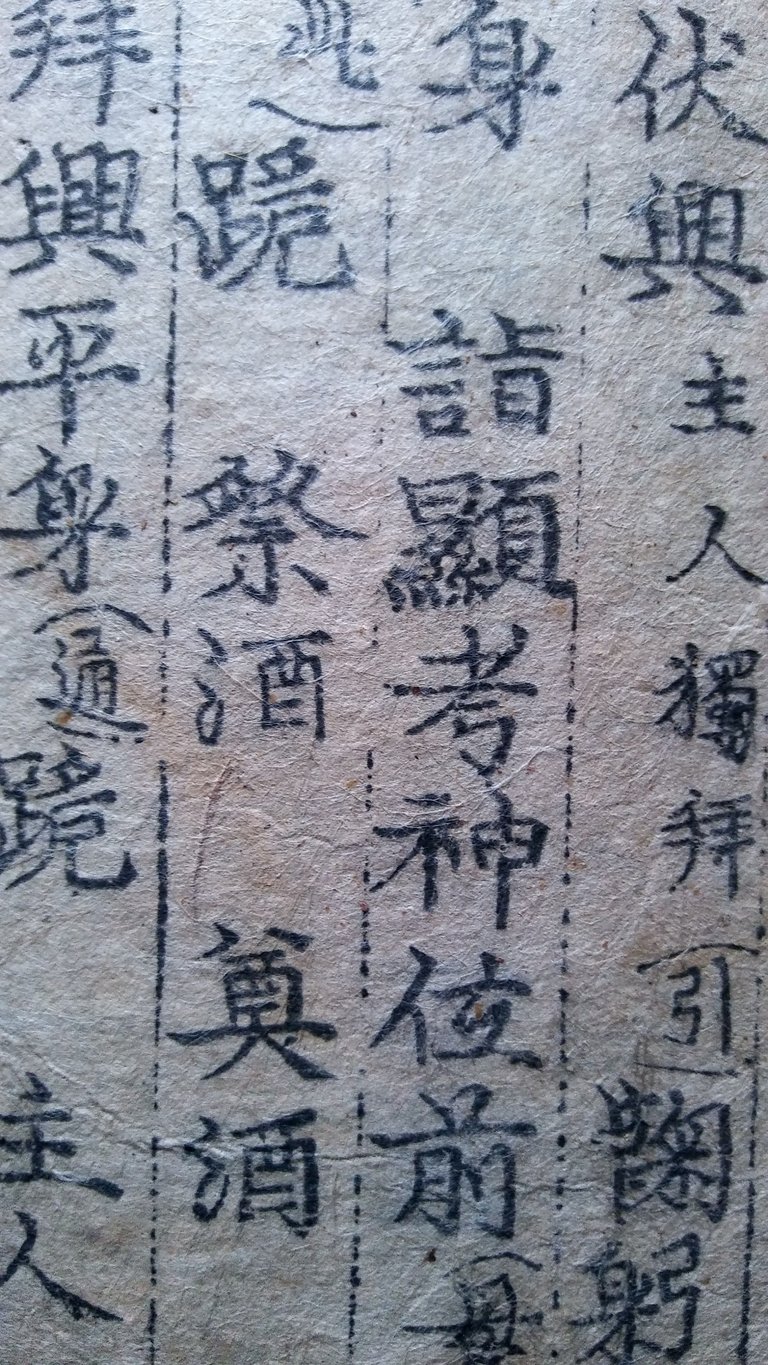 伏興主人獨拜（引）鞠躬
身 詣顯考神位前（
跪 祭酒 奠酒
拜興平身（通）跪 主人